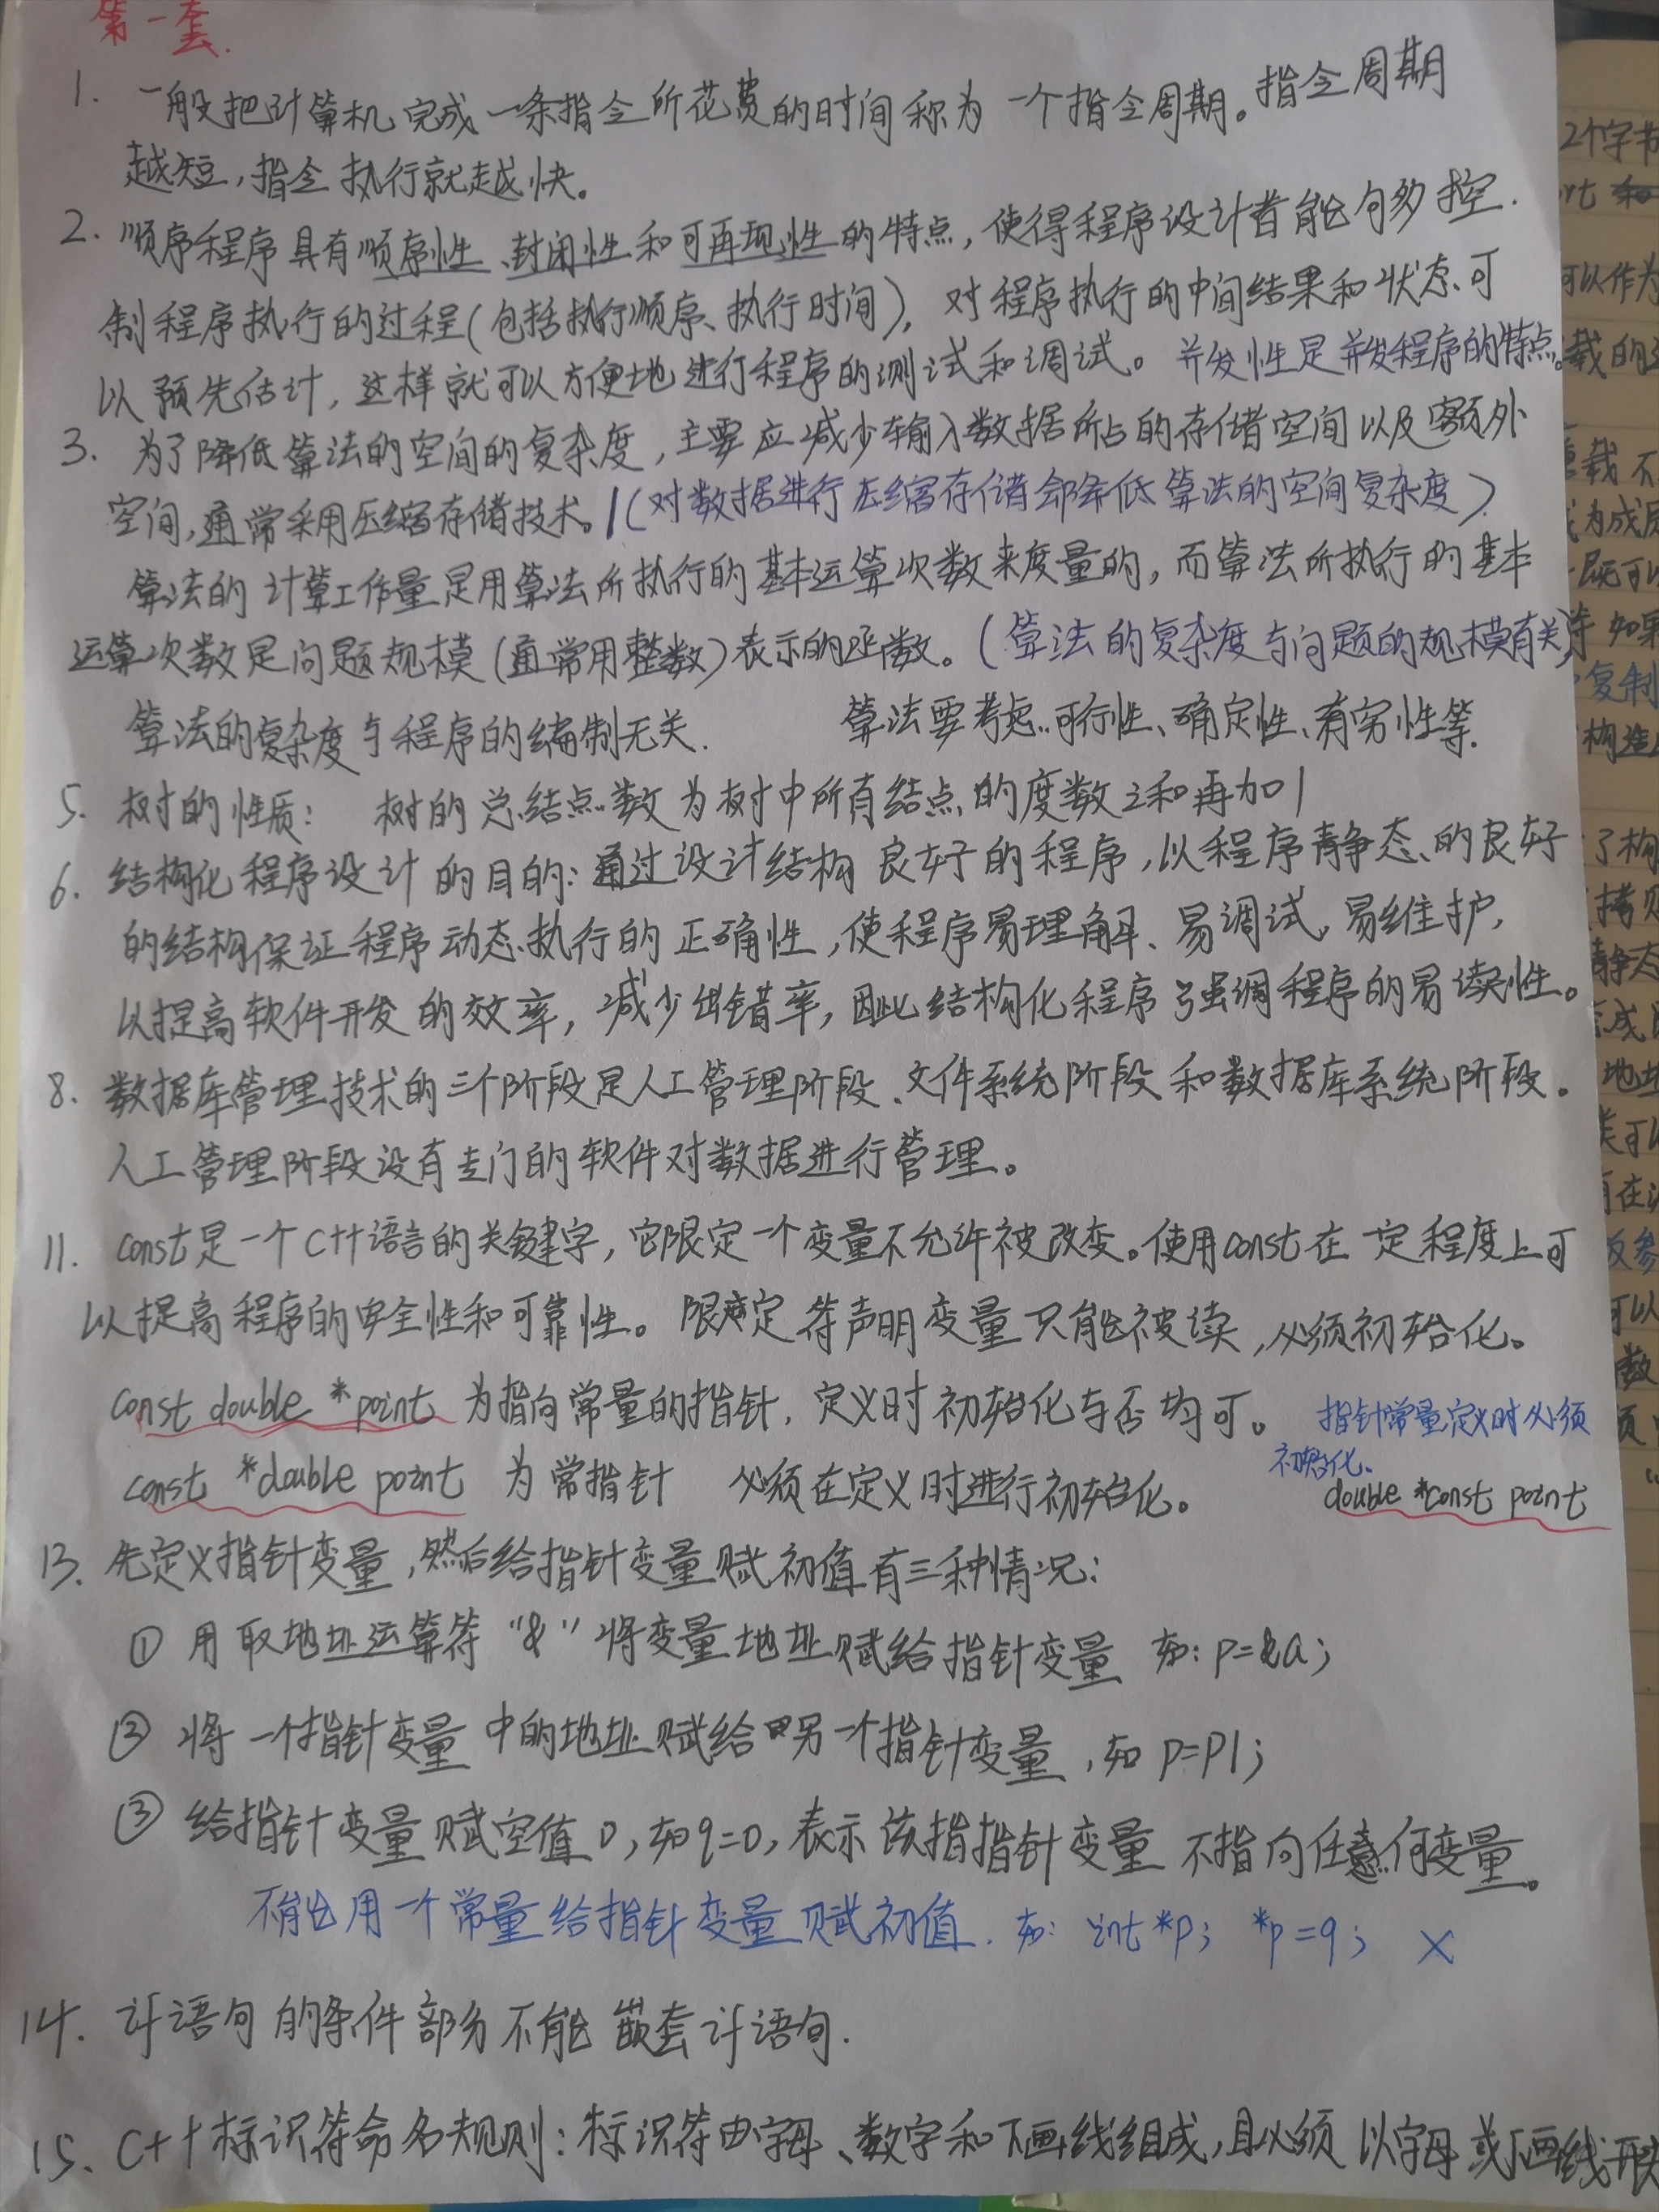 第一套.
1. 一般把计算机完成一条指令所花费的时间称为一个指令周期。指令周期
越短,指令执行就越快。
2. 顺序程序具有顺序性、封闭性和可再现性的特点,使得程序设计者能句多控
制程序执行的过程(包括执行顺序、执行时间),对程序执行的中间结果和状态可
以预先估计,这样就可以方便地进行程序的测试和调试。并发性是并发程序的特点。
3. 为了降低算法的空间的复杂度,主要应减少输入数据所占的存储空间以及额外
空间,通常采用压缩存储技术。/(对数据进行压缩存储会降低算法的空间复杂度)
算法的计算工作量是用算法所执行的基本运算次数来度量的,而算法所执行的基本
运算次数是问题规模(通常用整数)表示的函数。(算法的复杂度与问题的规模有关)
算法的复杂度与程序的编制无关. 算法要考虑可行性、确定性、有穷性等.
5. 树的性质: 树的总结点数为树中所有结点的度数之和再加1
6. 结构化程序设计的目的:通过设计结构良好的程序,以程序静态的良好
的结构保证程序动态执行的正确性,使程序易理解、易调试、易维护,
以提高软件开发的效率,减少出错率,因此结构化程序强调程序的易读性。
8. 数据库管理技术的三个阶段是人工管理阶段、文件系统阶段和数据库系统阶段。
人工管理阶段没有专门的软件对数据进行管理。
11. const是一个C++语言的关键字,它限定一个变量不允许被改变。使用const在一定程度上可
以提高程序的安全性和可靠性。限定符声明变量只能被读,必须初始化。
const double *point 为指向常量的指针,定义时初始化与否均可。 指针常量定义时必须
初始化.
const *double point 为常指针 必须在定义时进行初始化。 double *const point
13. 先定义指针变量,然后给指针变量赋初值有三种情况:
① 用取地址运算符“&”将变量地址赋给指针变量 如:p=&a;
② 将一个指针变量中的地址赋给另一个指针变量,如p=p1;
③ 给指针变量赋空值0,如q=0,表示该指指针变量不指向任何变量。
不能用一个常量给指针变量赋初值. 如: int *p; *p=9; ×
14. if语句的条件部分不能嵌套if语句.
15. C++标识符命名规则:标识符由字母、数字和下画线组成,且必须以字母或下画线开头
2个字节
可以作为
载的
重载不
成为成员
如果
复制
构造
了构
拷贝
静态
地址
可以
数